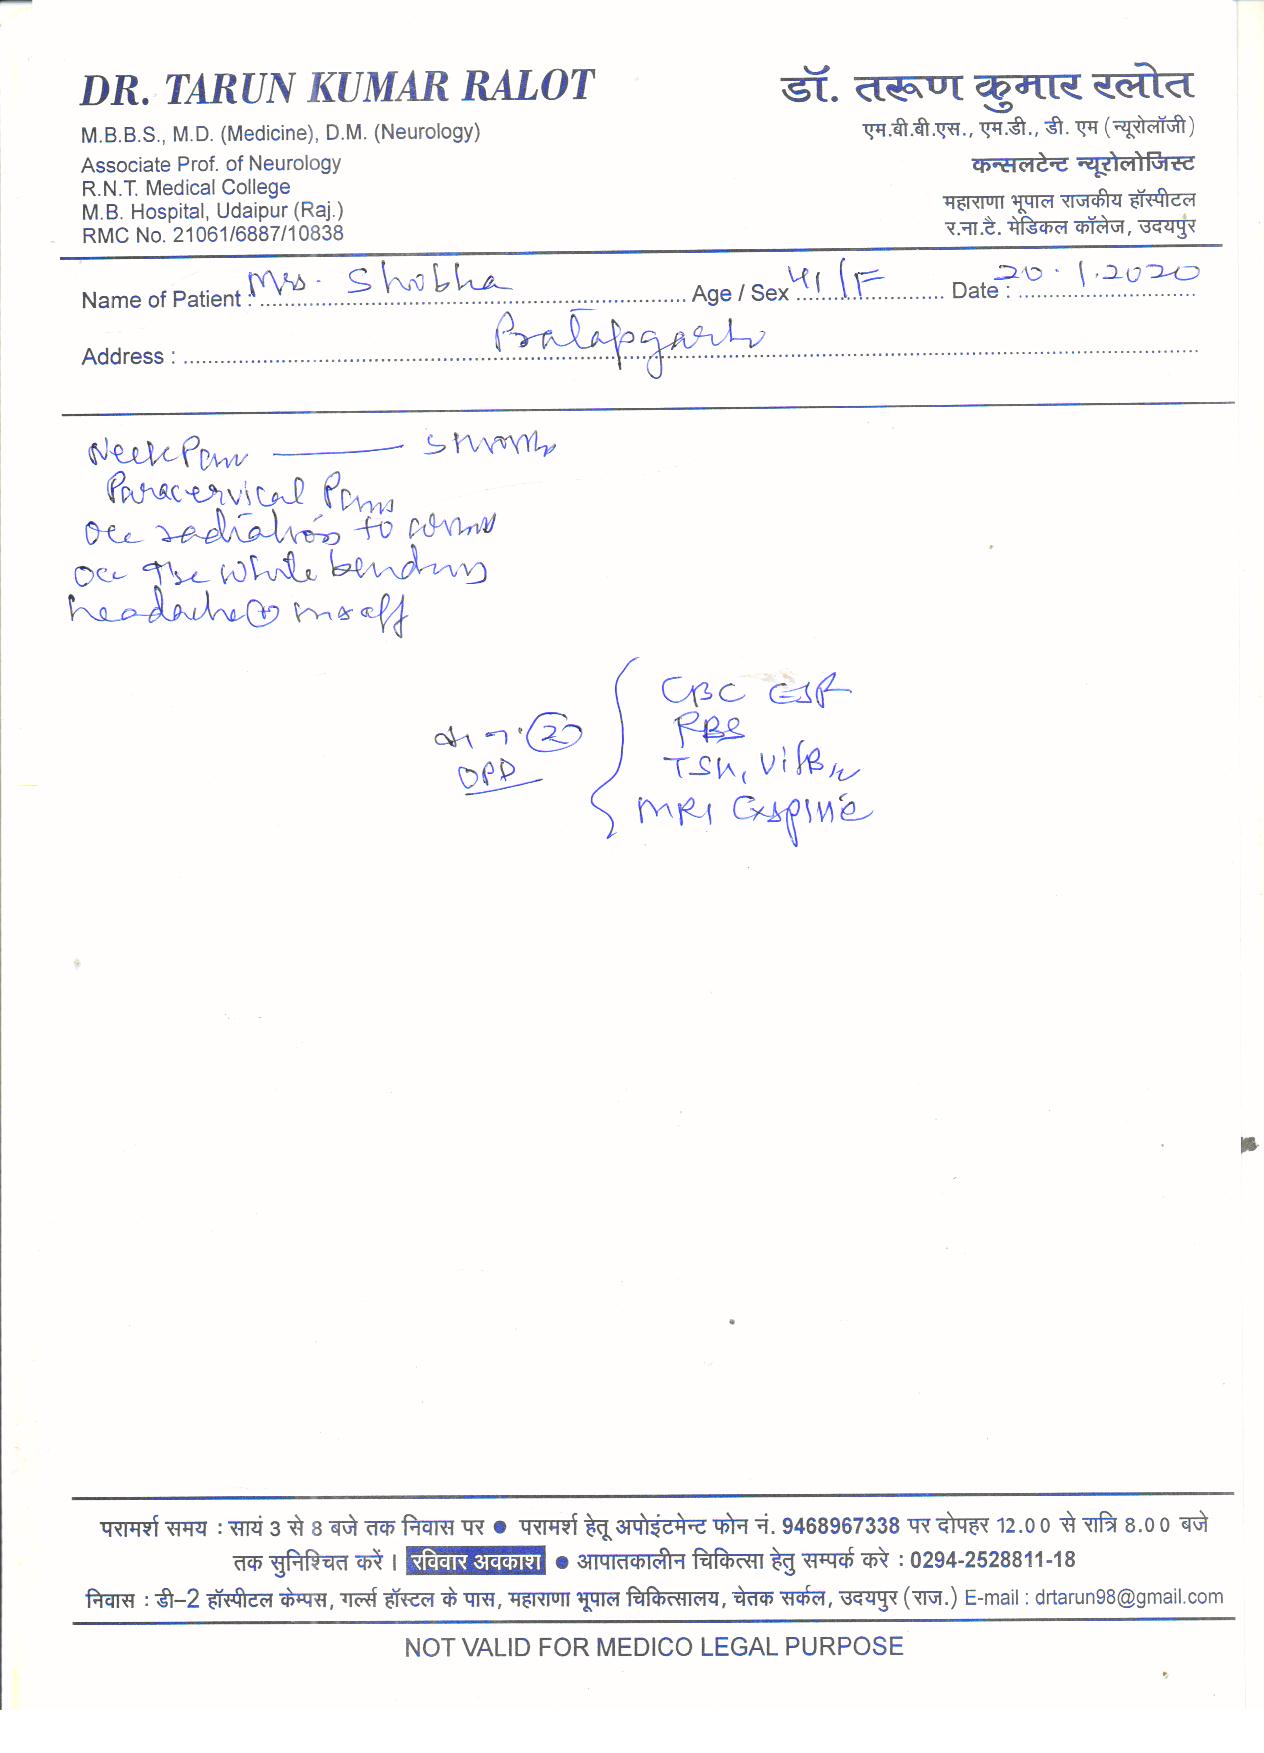 DR. TARUN KUMAR RALOT
M.B.B.S., M.D. (Medicine), D.M. (Neurology)
Associate Prof. of Neurology
R.N.T. Medical College
M.B. Hospital, Udaipur (Raj.)
RMC No. 21061/6887/10838
डॉ. तरूण कुमार रलोत
एम.बी.बी.एस., एम.डी., डी. एम (न्यूरोलॉजी)
कन्सलटेन्ट न्यूरोलोजिस्ट
महाराणा भूपाल राजकीय हॉस्पीटल
र.ना.टै. मेडिकल कॉलेज, उदयपुर
Name of Patient : Mrs. Shobha Age / Sex 41/F Date : 20.1.2020
Address :
Neck Pain
Paracervical Pain
occ radiation to arms
occ while bending
headache ⊕
CBC ESR
RBS
② TSH, Vit B12
OPD
MRI C x spine
परामर्श समय : सायं 3 से 8 बजे तक निवास पर ● परामर्श हेतू अपोइंटमेन्ट फोन नं. 9468967338 पर दोपहर 12.00 से रात्रि 8.00 बजे
तक सुनिश्चित करें । रविवार अवकाश ● आपातकालीन चिकित्सा हेतु सम्पर्क करे : 0294-2528811-18
निवास : डी-2 हॉस्पीटल केम्पस, गर्ल्स हॉस्टल के पास, महाराणा भूपाल चिकित्सालय, चेतक सर्कल, उदयपुर (राज.) E-mail : drtarun98@gmail.com
NOT VALID FOR MEDICO LEGAL PURPOSE